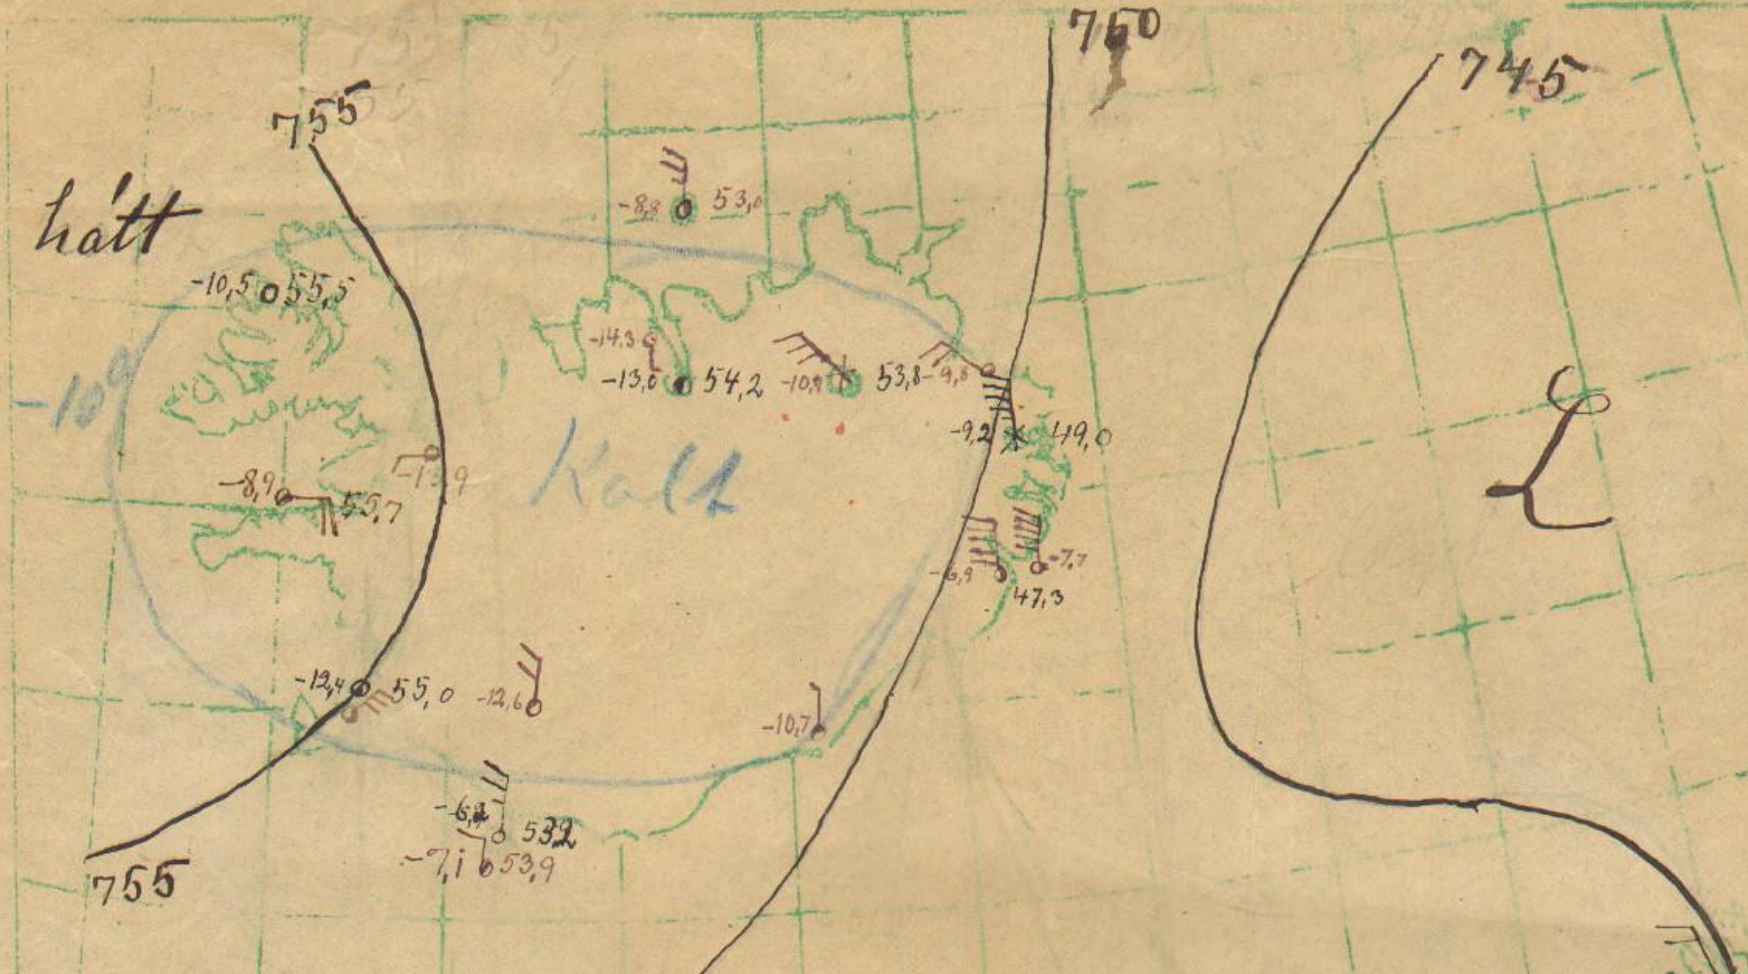 750
745
755
hátt
-8,8 53,0
-10,5 55,5
-14,3
-13,0 54,2
53,8
-10°
-9,2 49,0
Kalt
-8,9 55,7
L
-6,9
-7,7
47,3
-12,4 55,0
-12,6
-10,7
53,2
-7,1 53,9
755